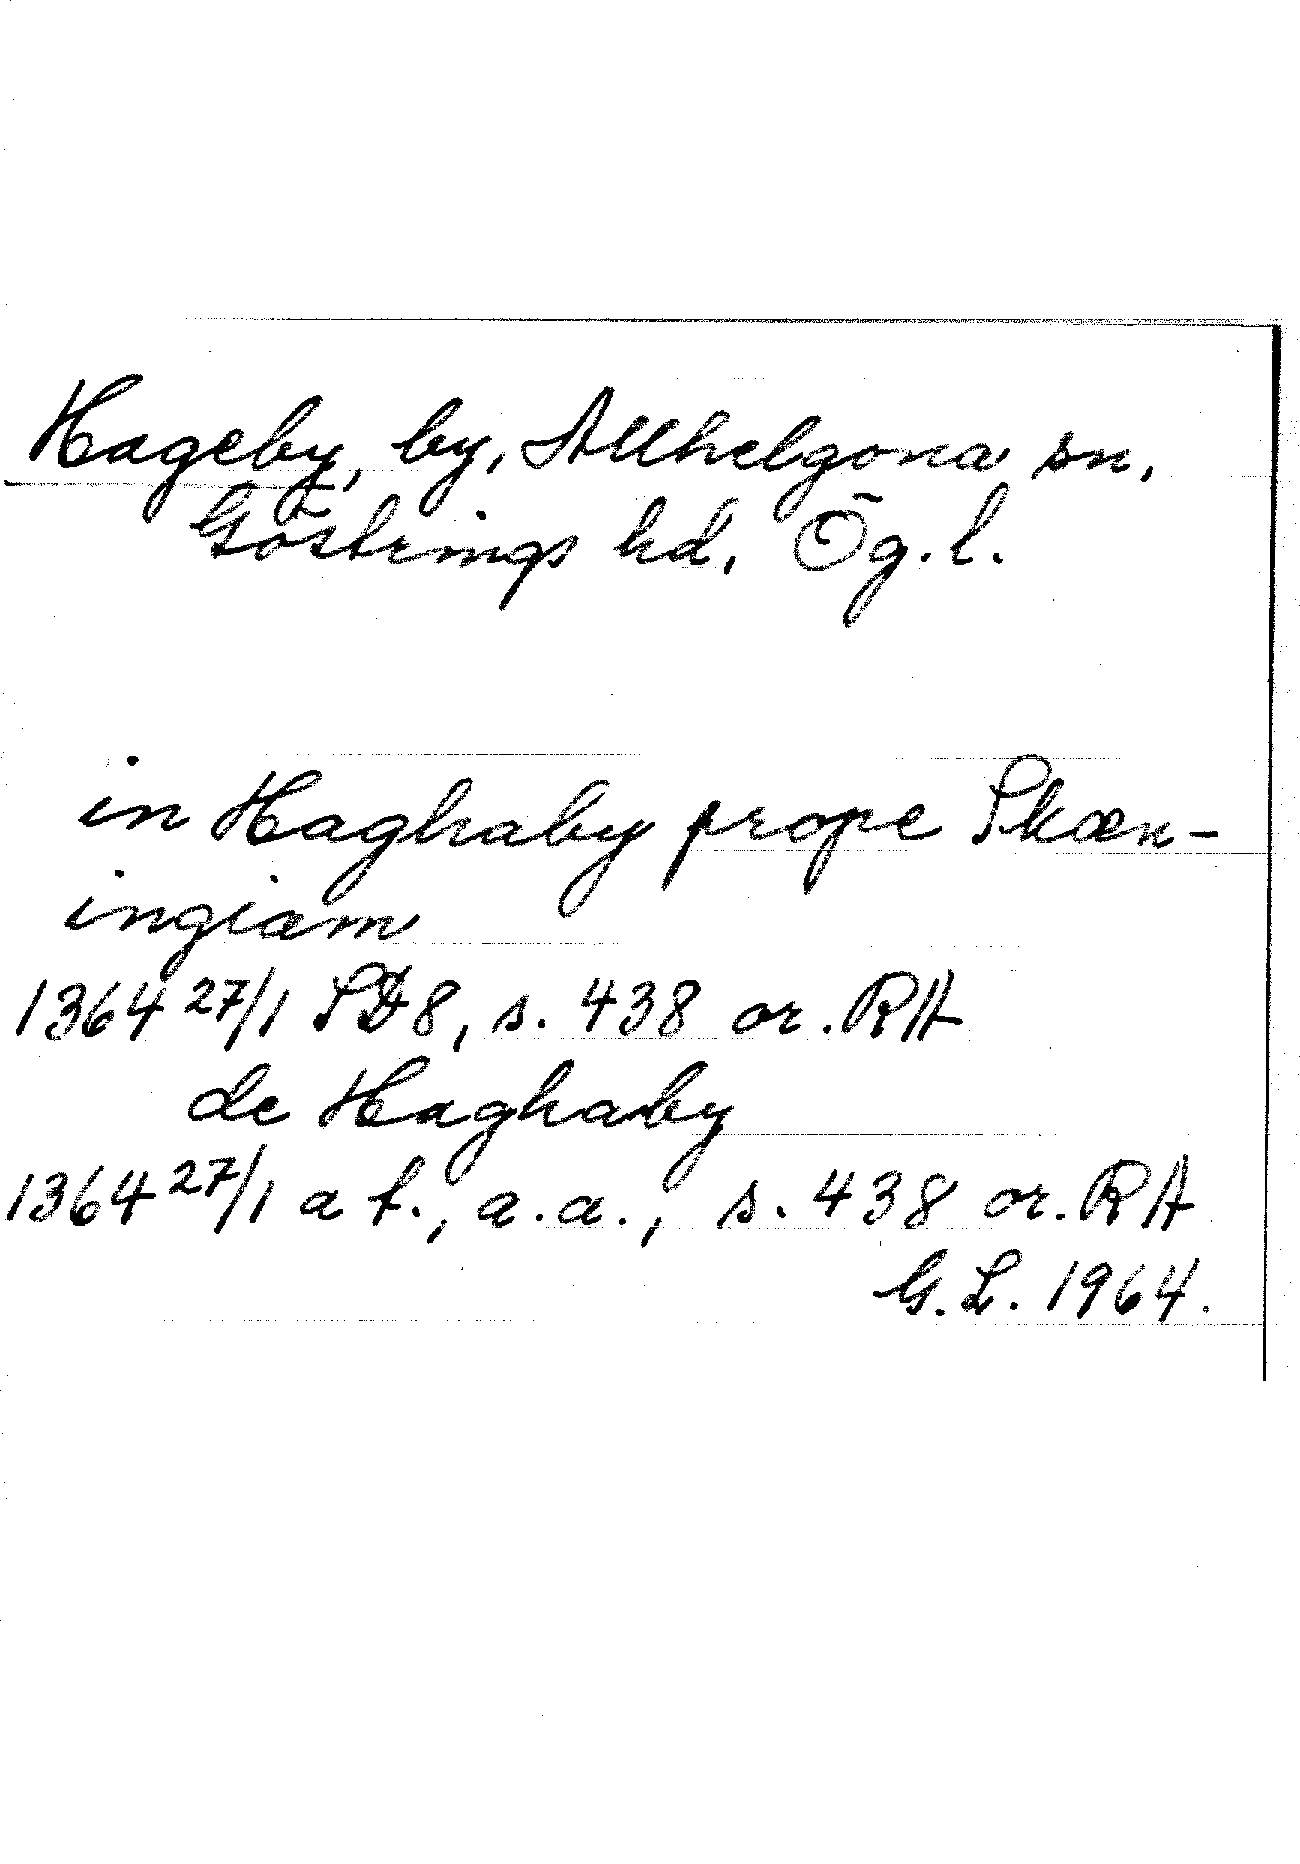 Hageby, by, Allhelgona sn,
Göstrings hd, Ög.l.
in Haghaby prope Skæn-
ingiam
1364 27/1 SD8, s. 438 or. RA
de Haghaby
1364 27/1 a t., a.a., s. 438 or. RA
G.L. 1964.